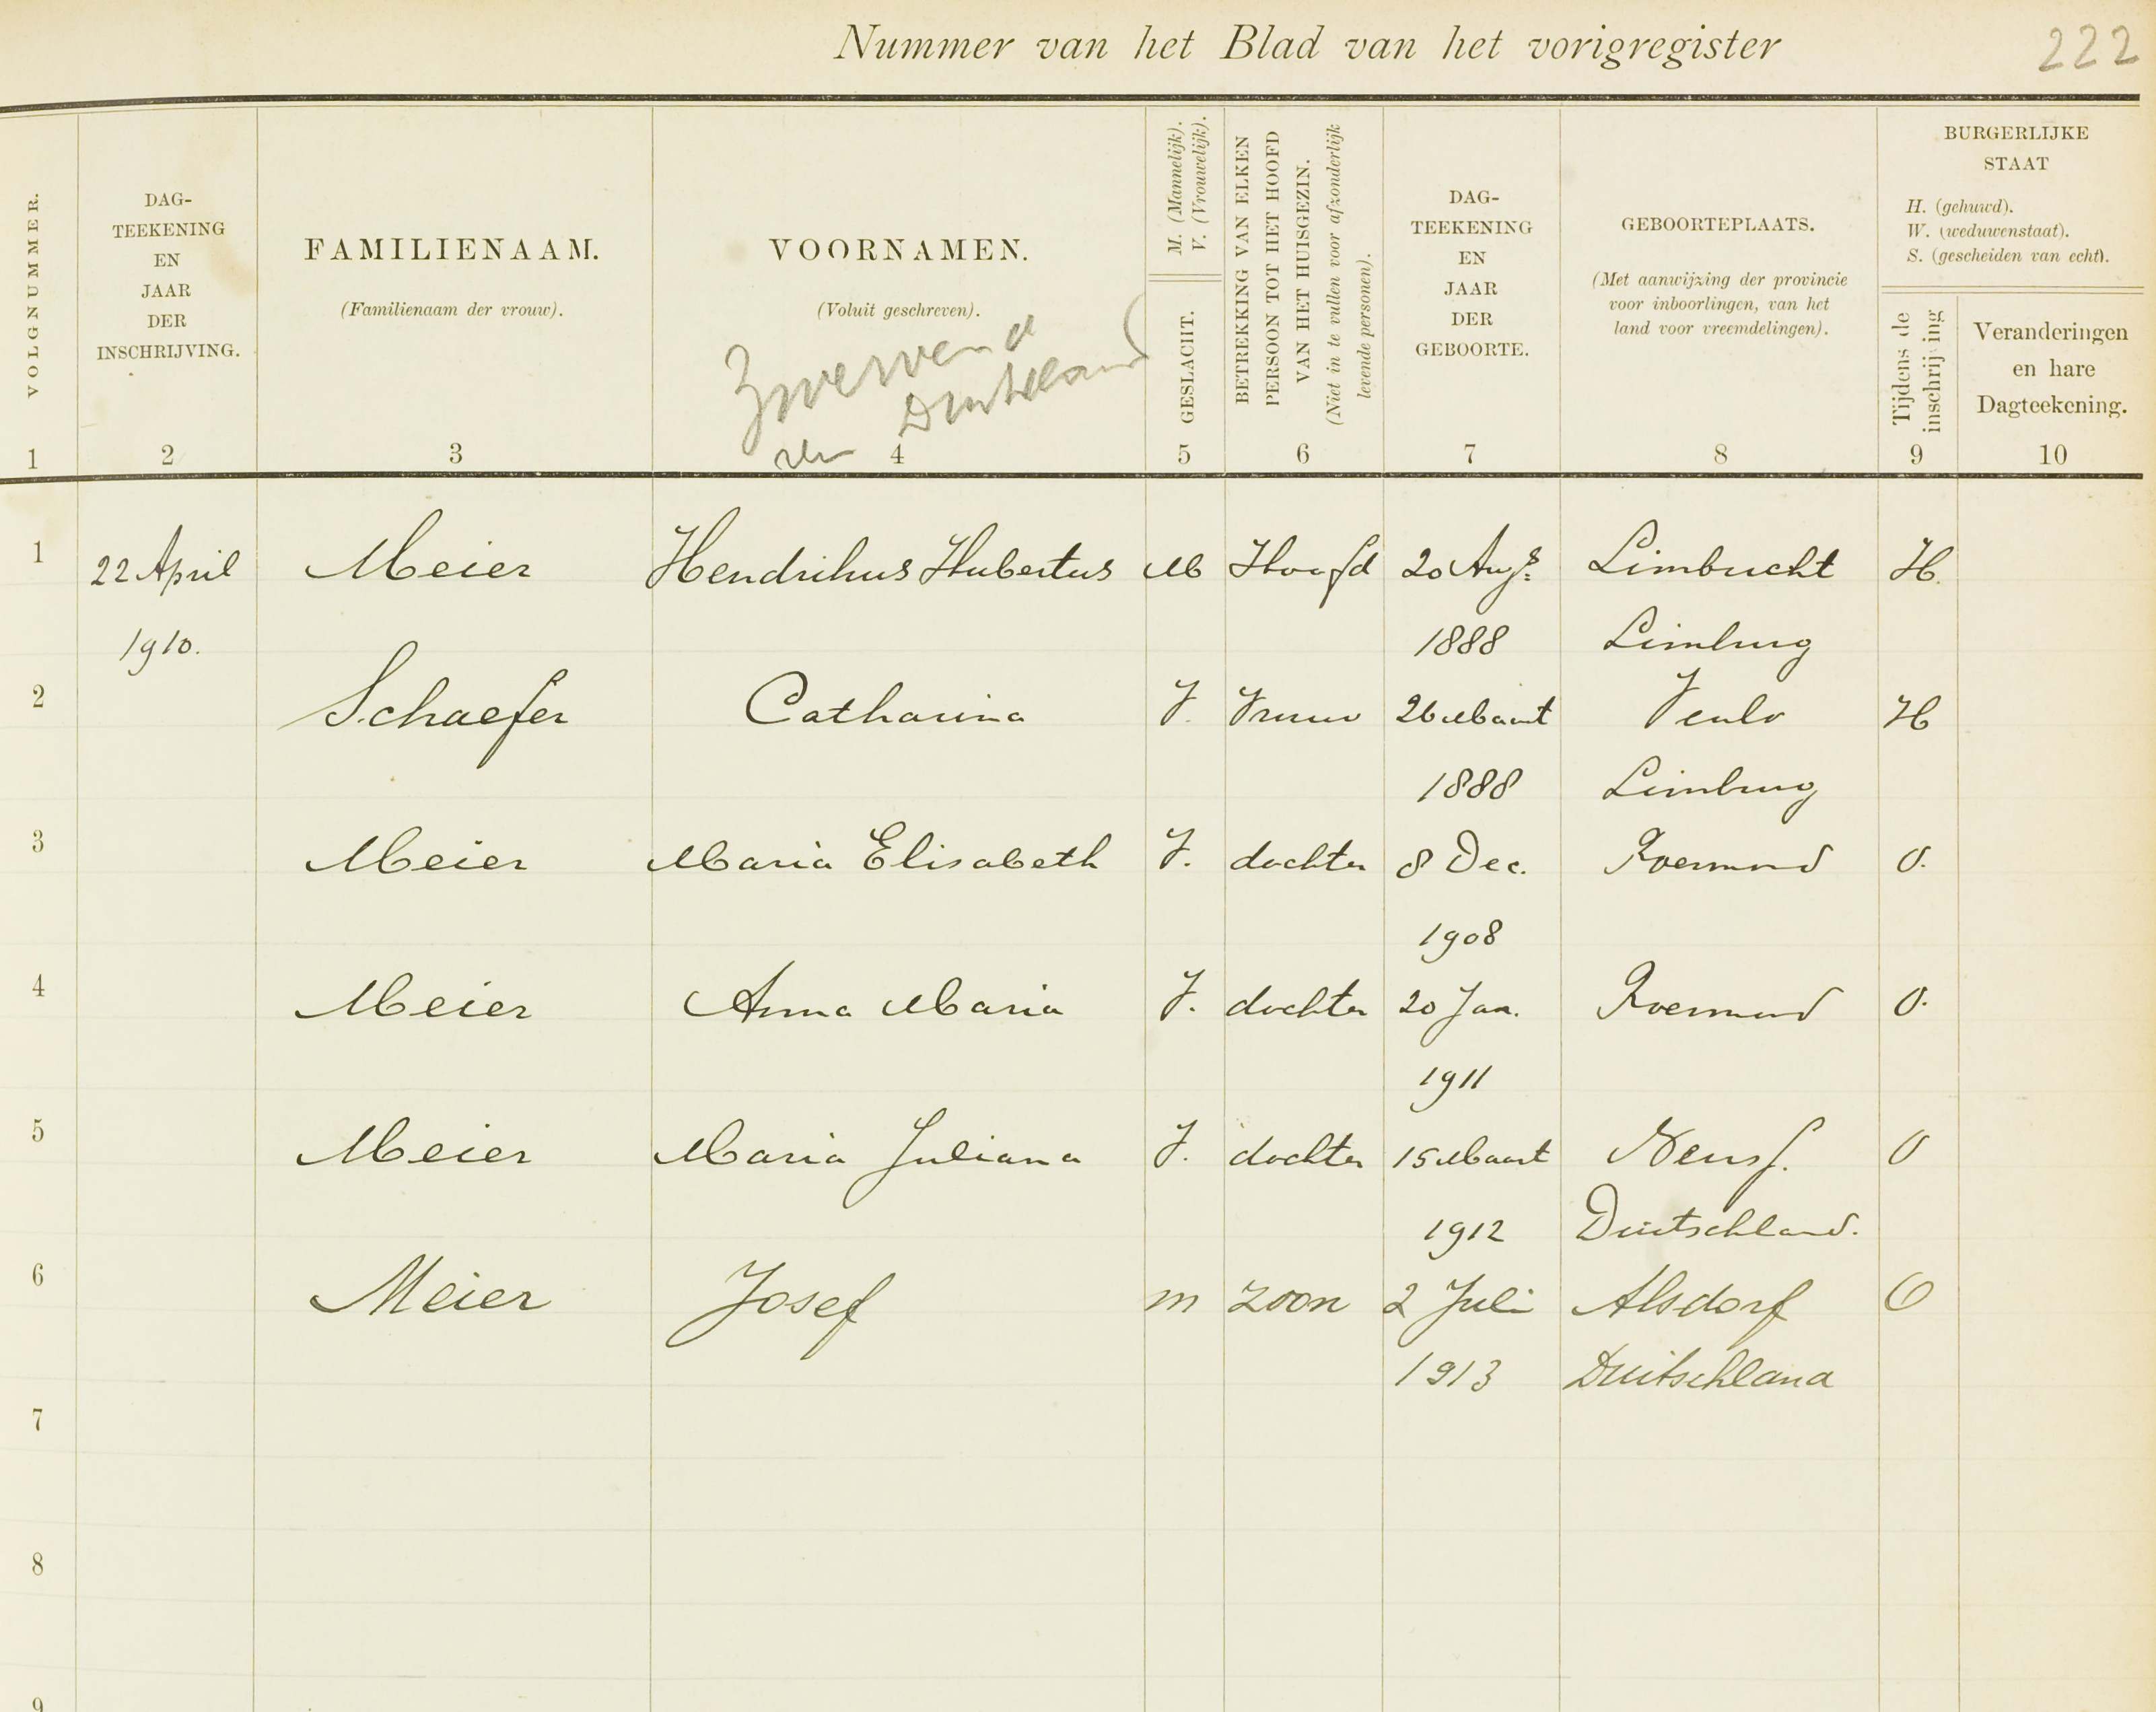 Nummer van het Blad van het vorigregister 222
VOLGNUMMER.
1
DAG-
TEEKENING
EN
JAAR
DER
INSCHRIJVING.
2
FAMILIENAAM.
(Familienaam der vrouw).
3
VOORNAMEN.
(Voluit geschreven).
Zwervend
4
M. (Mannelijk).
V. (Vrouwelijk).
GESLACHT.
5
BETREKKING VAN ELKEN
PERSOON TOT HET HOOFD
VAN HET HUISGEZIN.
(Niet in te vullen voor afzonderlijk
levende personen).
6
DAG-
TEEKENING
EN
JAAR
DER
GEBOORTE.
7
GEBOORTEPLAATS.
(Met aanwijzing der provincie
voor inboorlingen, van het
land voor vreemdelingen).
8
BURGERLIJKE
STAAT
H. (gehuwd).
W. (weduwenstaat).
S. (gescheiden van echt).
Tijdens de
inschrijving
9
Veranderingen
en hare
Dagteekening.
10
1 22 April Meier Hendrikus Hubertus M Hoofd 20 Augs. Limbricht H.
1910. 1888 Limburg
2 Schaefer Catharina V. Vrouw 26 Maart Venlo H
1888 Limburg
3 Meier Maria Elisabeth V. dochter 8 Dec. Roermond O.
1908
4 Meier Anna Maria V. dochter 20 Jan. Roermond O.
1911
5 Meier Maria Juliana V. dochter 15 Maart O
1912 Duitschland.
6 Meier Josef m zoon 2 Juli Alsdorf O
1913 Duitschland
7
8
9